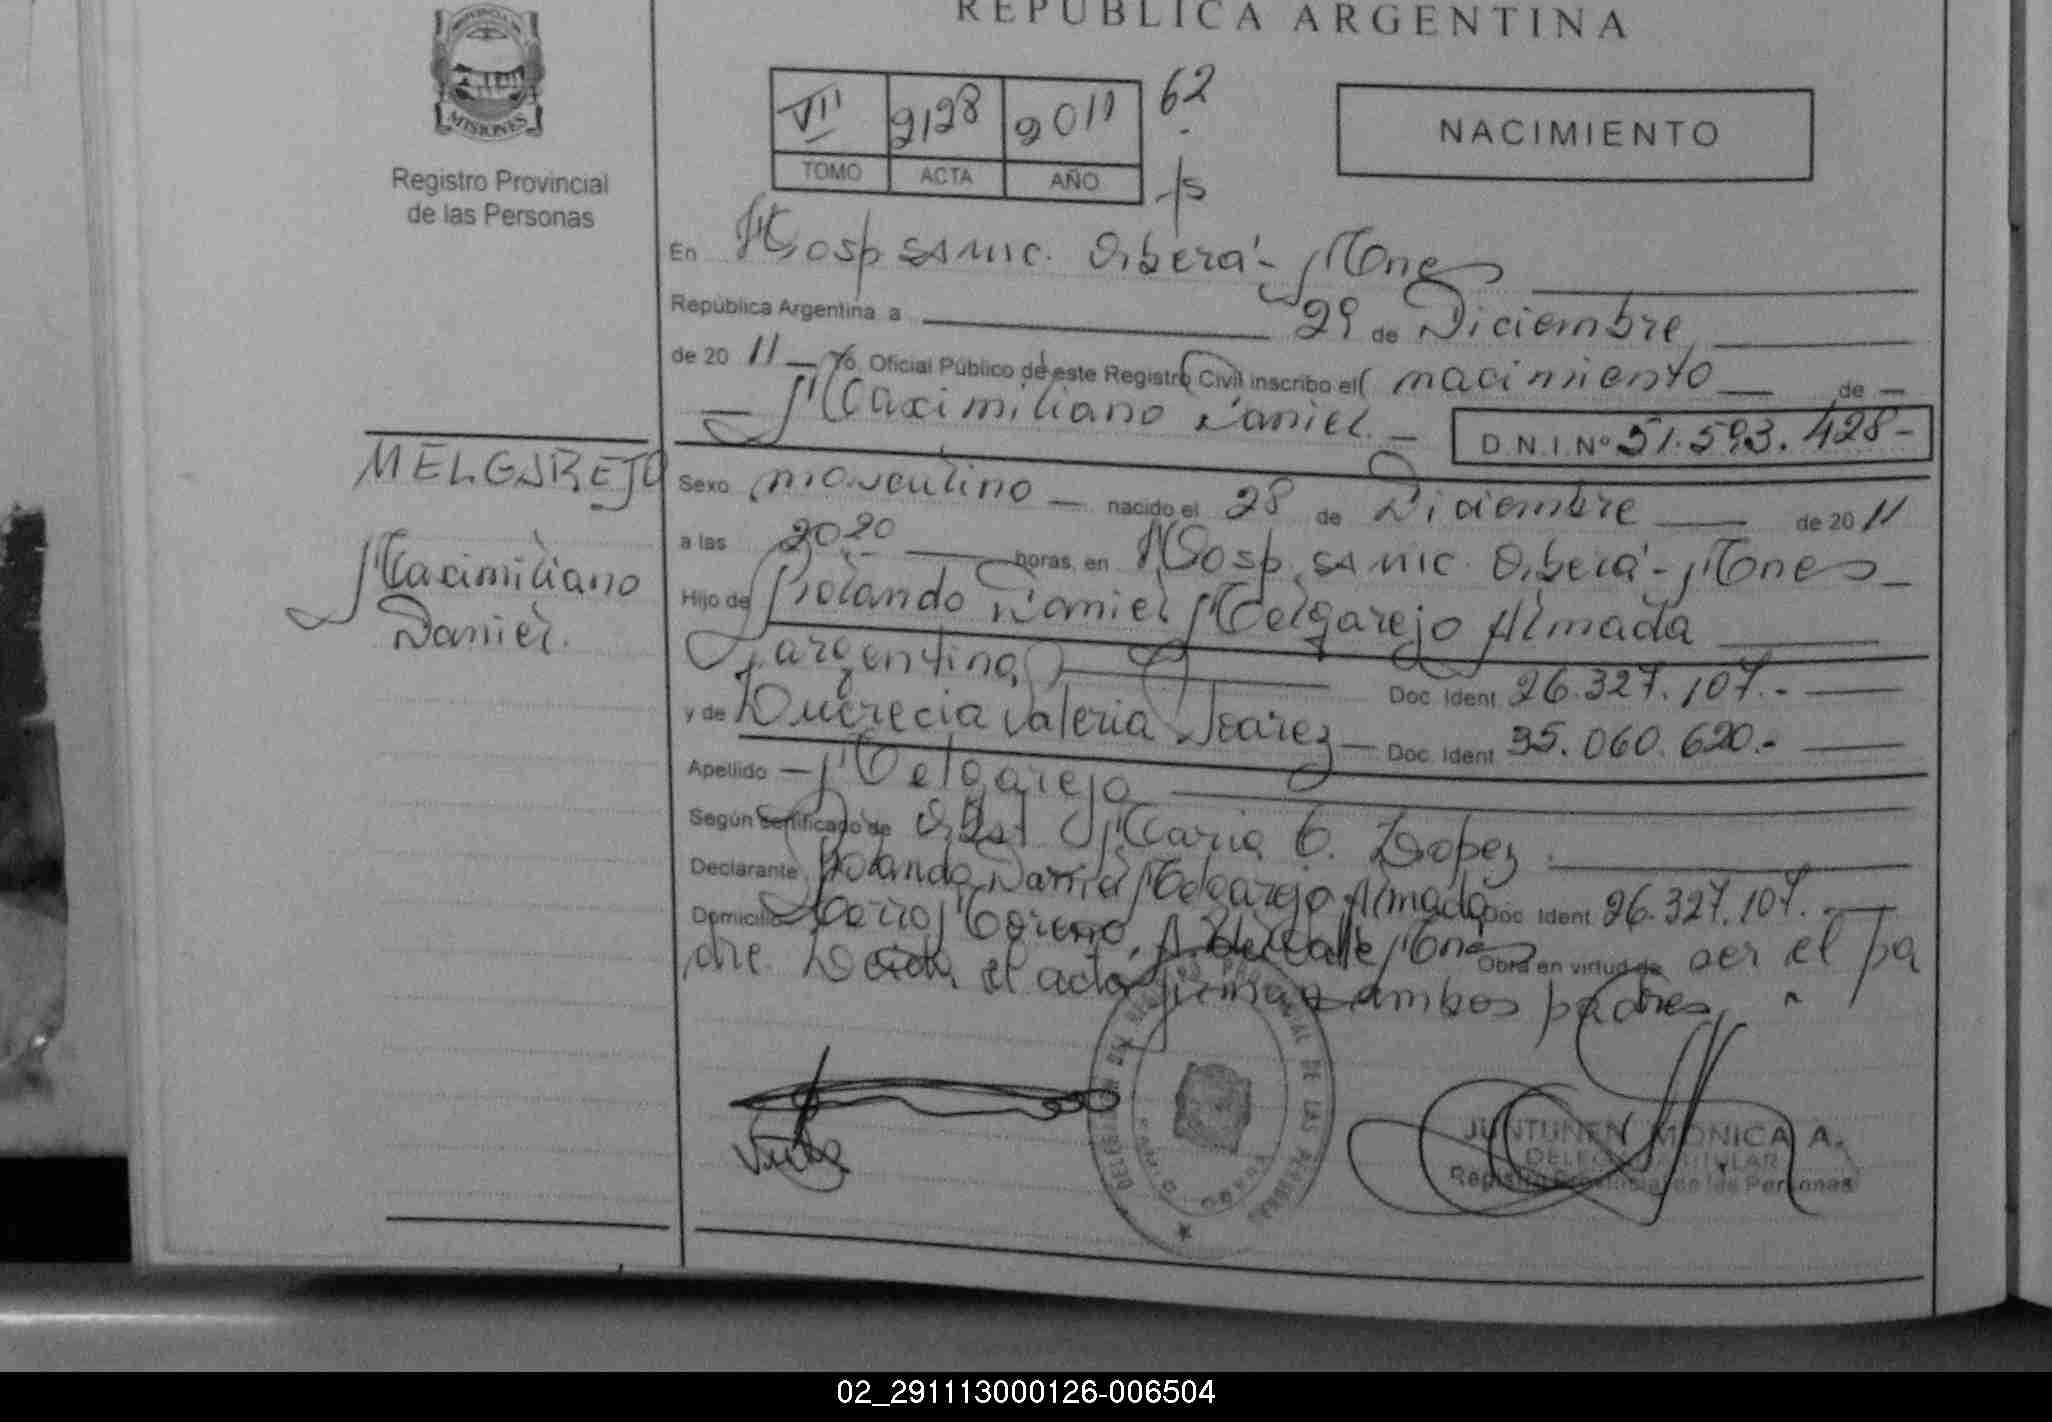 REPUBLICA ARGENTINA
PROVINCIA DE
MISIONES
Registro Provincial
de las Personas
VII 2128 2011 62
TOMO ACTA AÑO
NACIMIENTO
En Hosp SAMIC. Oberá - Mnes
República Argentina a 29 de Diciembre
de 2011 Yo, Oficial Público de este Registro Civil inscribo el nacimiento de
Maximiliano Daniel. - D.N.I.Nº 51.593.428-
MELGAREJO
Maximiliano
Daniel.
Sexo masculino nacido el 28 de Diciembre de 2011
a las 2020 horas, en Hosp. SAMIC. Oberá - Mnes
Hijo de Rolando Daniel Melgarejo Almada
argentino Doc. Ident 26.327.107.-
y de Lucrecia Valeria Suarez Doc. Ident 35.060.620.-
Apellido Melgarejo
Según certificado de Obst Maria C. Lopez
Declarante Rolando Daniel Melgarejo Almada Doc. Ident 26.327.107.-
Domicilio Moreno, A. del Valle Mnes Obra en virtud de ser el pa
dre. Leida el acta firman ambos padres
DELEGACION REGISTRO PROVINCIAL DE LAS PERSONAS
JUNTUNEN MONICA A.
DELEGADA TITULAR
Registro Provincial de las Personas
02_291113000126-006504